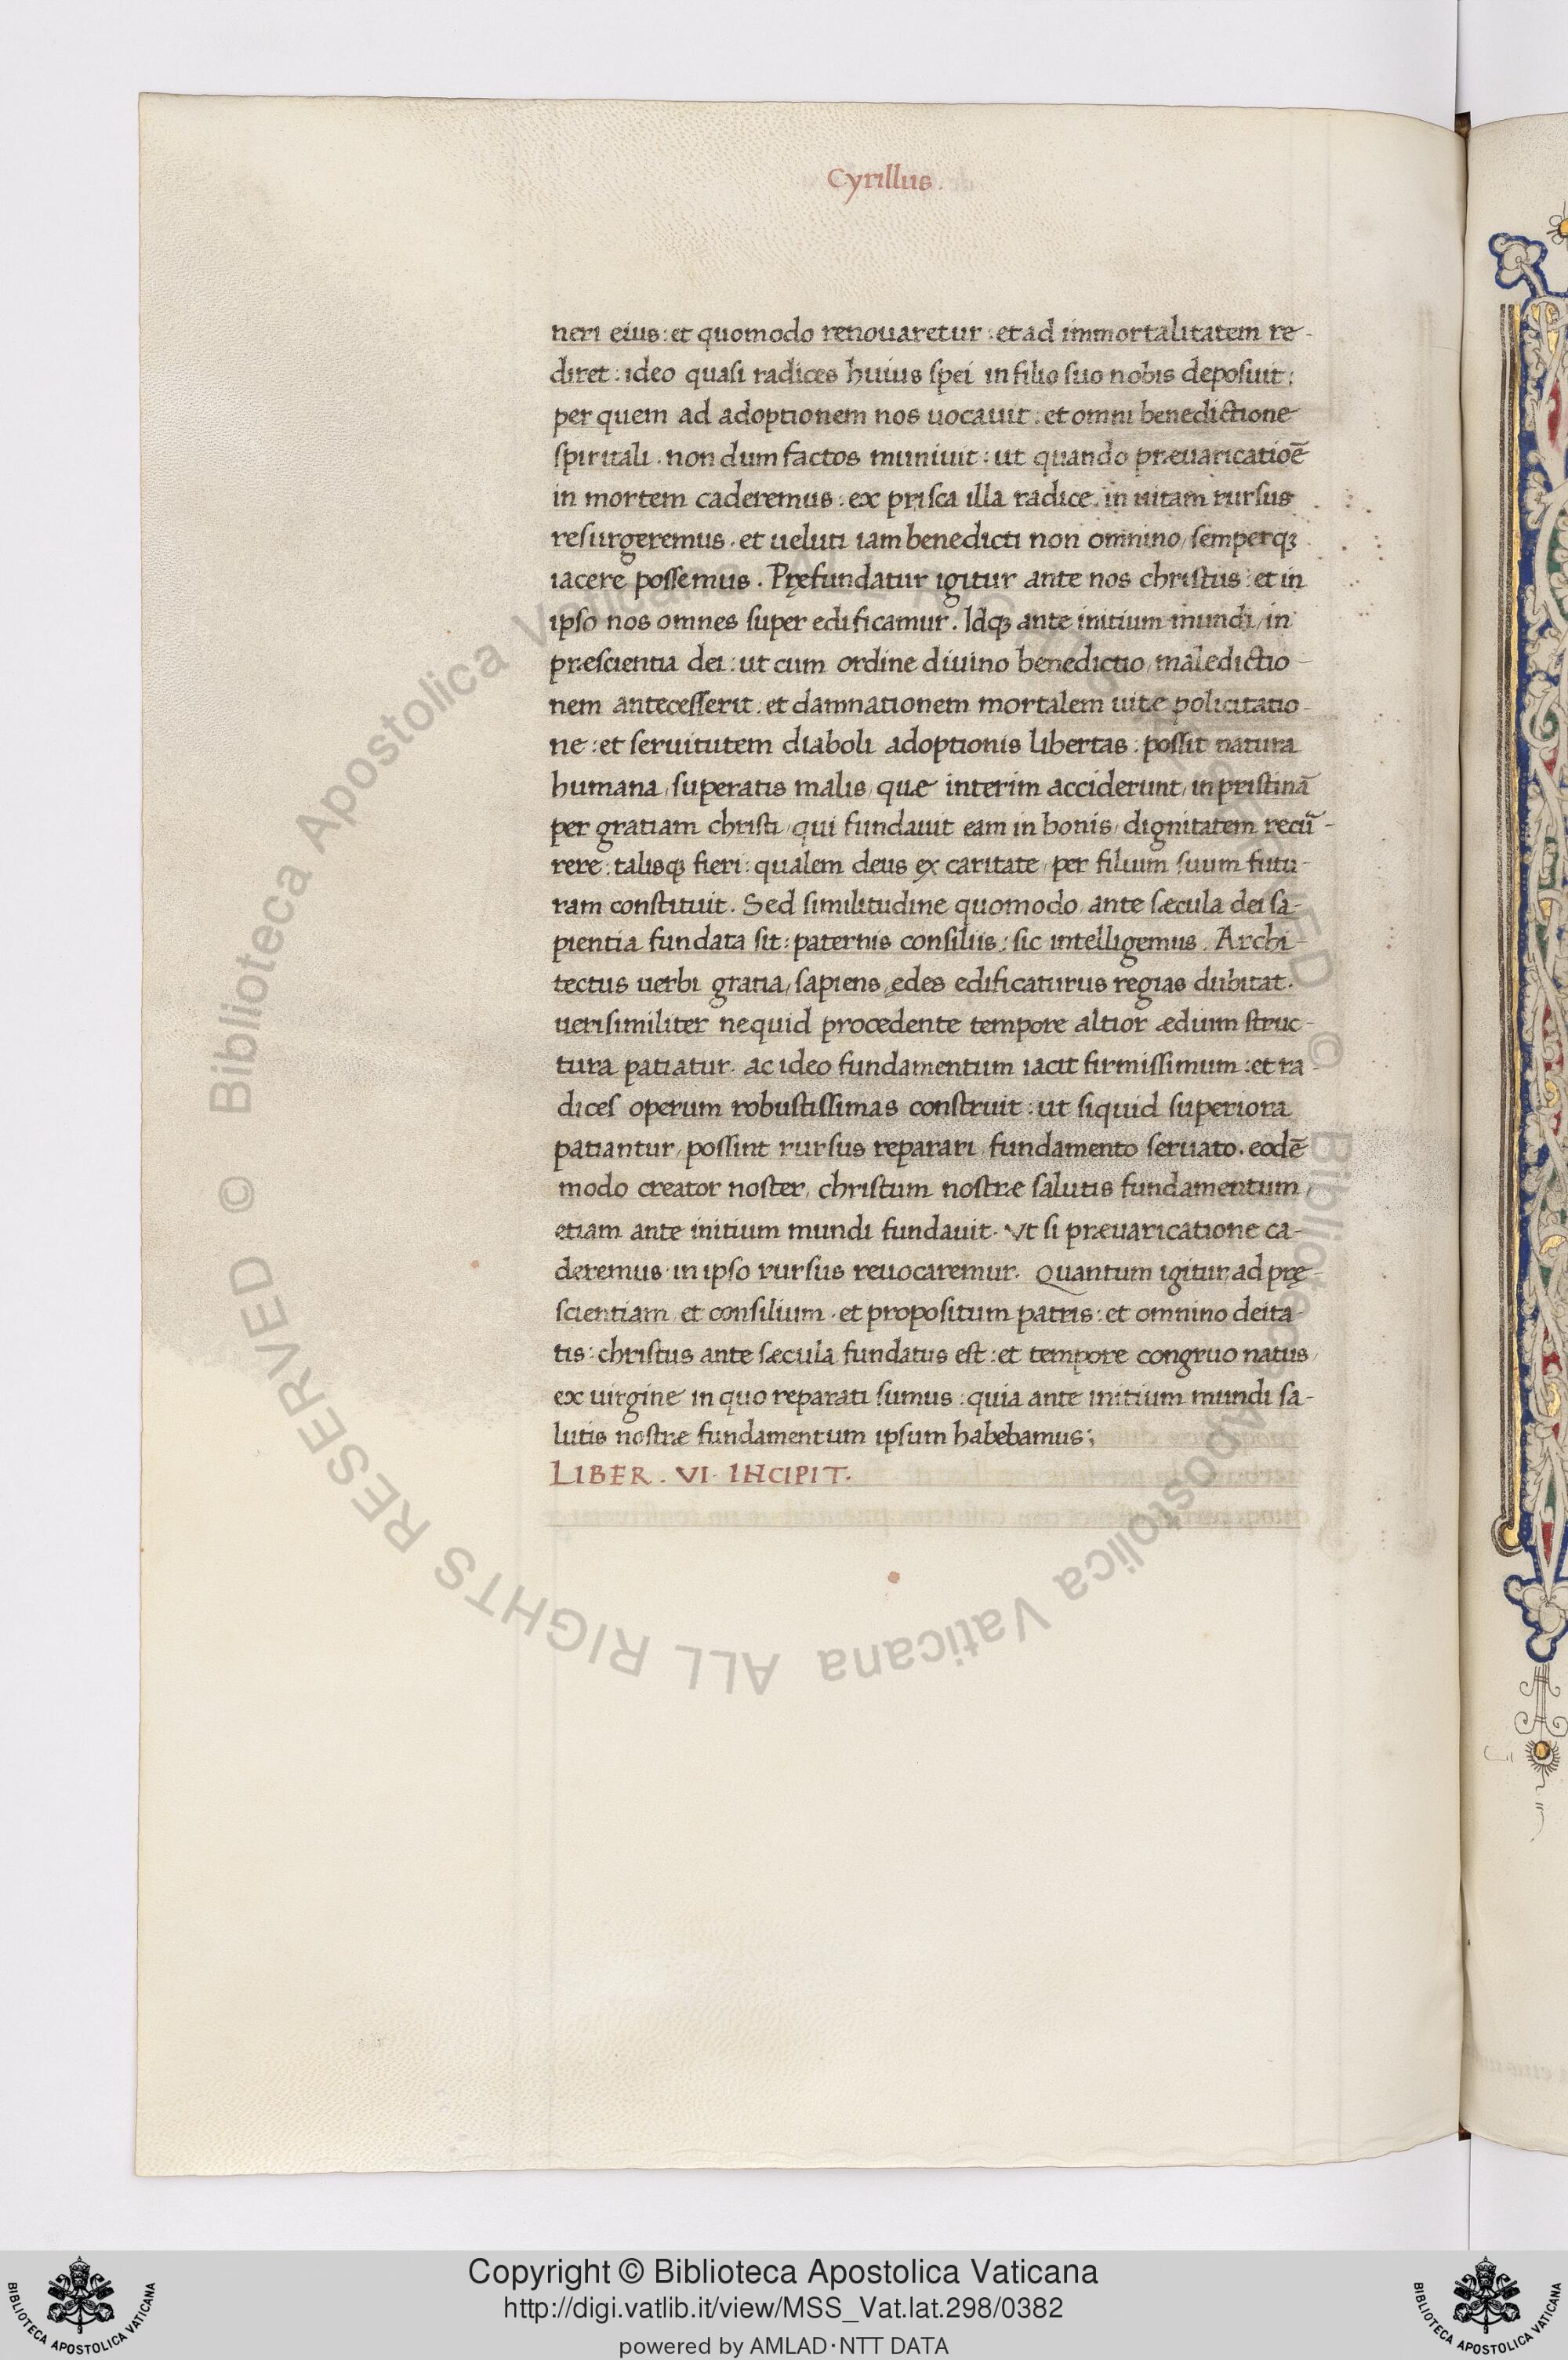 Cyrillus.
neri eius: et quomodo renouaretur: et ad immortalitatem re-
diret: ideo quasi radices huius spei in filio suo nobis deposuit:
per quem ad adoptionem nos uocauit: et omni benedictione
spiritali. non dum factos muniuit: ut quando præuaricatioē
in mortem caderemus: ex prisca illa radice in uitam rursus
resurgeremus. et ueluti iam benedicti non omnino, semperqꝫ
iacere possemus. Pręfundatur igitur ante nos christus: et in
ipso nos omnes super edificamur. Idqꝫ ante initium mundi, in
præscientia dei: ut cum ordine diuino benedictio, maledictio-
nem antecesserit: et damnationem mortalem uitæ policitatio-
ne: et seruitutem diaboli adoptionis libertas: possit natura
humana, superatis malis, quæ interim acciderunt, in pristinā
per gratiam christi, qui fundauit eam in bonis, dignitatem recū-
rere: talisqꝫ fieri: qualem deus ex caritate, per filium suum futu-
ram constituit. Sed similitudine quomodo, ante sæcula dei sa-
pientia fundata sit: paternis consiliis: sic intelligemus. Archi-
tectus uerbi gratia, sapiens, ędes edificaturus regias dubitat.
uerisimiliter nequid procedente tempore altior ædium struc-
tura patiatur. ac ideo fundamentum iacit firmissimum: et ra-
dices operum robustissimas construit: ut siquid superiora
patiantur, possint rursus reparari, fundamento seruato. eodē
modo creator noster, christum nostræ salutis fundamentum,
etiam ante initium mundi fundauit. Vt si præuaricatione ca-
deremus. in ipso rursus reuocaremur. Quantum igitur, ad prę-
scientiam, et consilium. et propositum patris: et omnino deita-
tis: christus ante sæcula fundatus est: et tempore congruo natus,
ex uirgine in quo reparati sumus: quia ante initium mundi sa-
lutis nostræ fundamentum ipsum habebamus;
LIBER. VI. INCIPIT.
© Biblioteca Apostolica Vaticana ALL RIGHTS RESERVED © Biblioteca Apostolica Vaticana ALL RIGHTS RESERVED
Copyright © Biblioteca Apostolica Vaticana
http://digi.vatlib.it/view/MSS_Vat.lat.298/0382
powered by AMLAD·NTT DATA
BIBLIOTECA APOSTOLICA VATICANA
BIBLIOTECA APOSTOLICA VATICANA